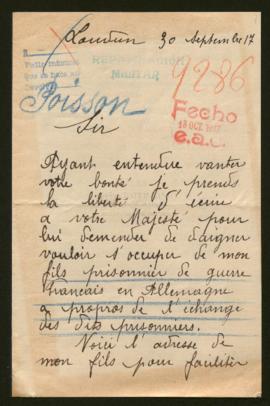 Loudun 30 septembre 17
9286
Poisson
Fecho
13 OCT. 1917
e.a.
Sir
Ayant entendue vanter
votre bonté je prends
la liberté d'écrire
a votre Majesté pour
lui demender de daigner
vouloir s'occuper de mon
fils prisonnier de guerre
français en Allemagne
a propros de l'échange
des dits prisonniers.
Voici l'adresse de
mon fils pour faciliter